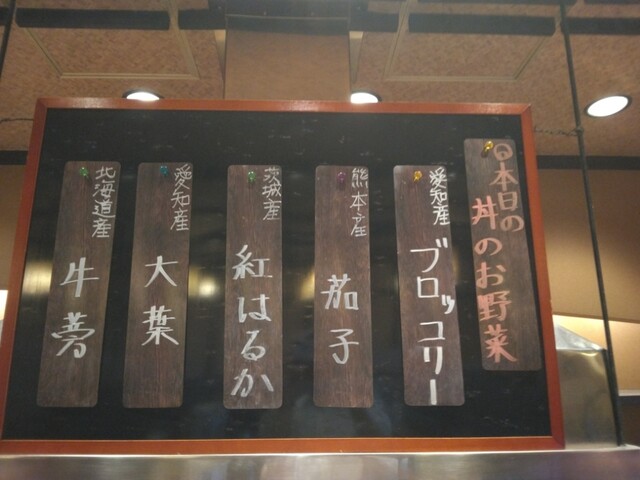 ◎本日の
丼のお野菜
愛知産
ブロッコリー
熊本産
茄子
茨城産
紅はるか
愛知産
大葉
北海道産
牛蒡